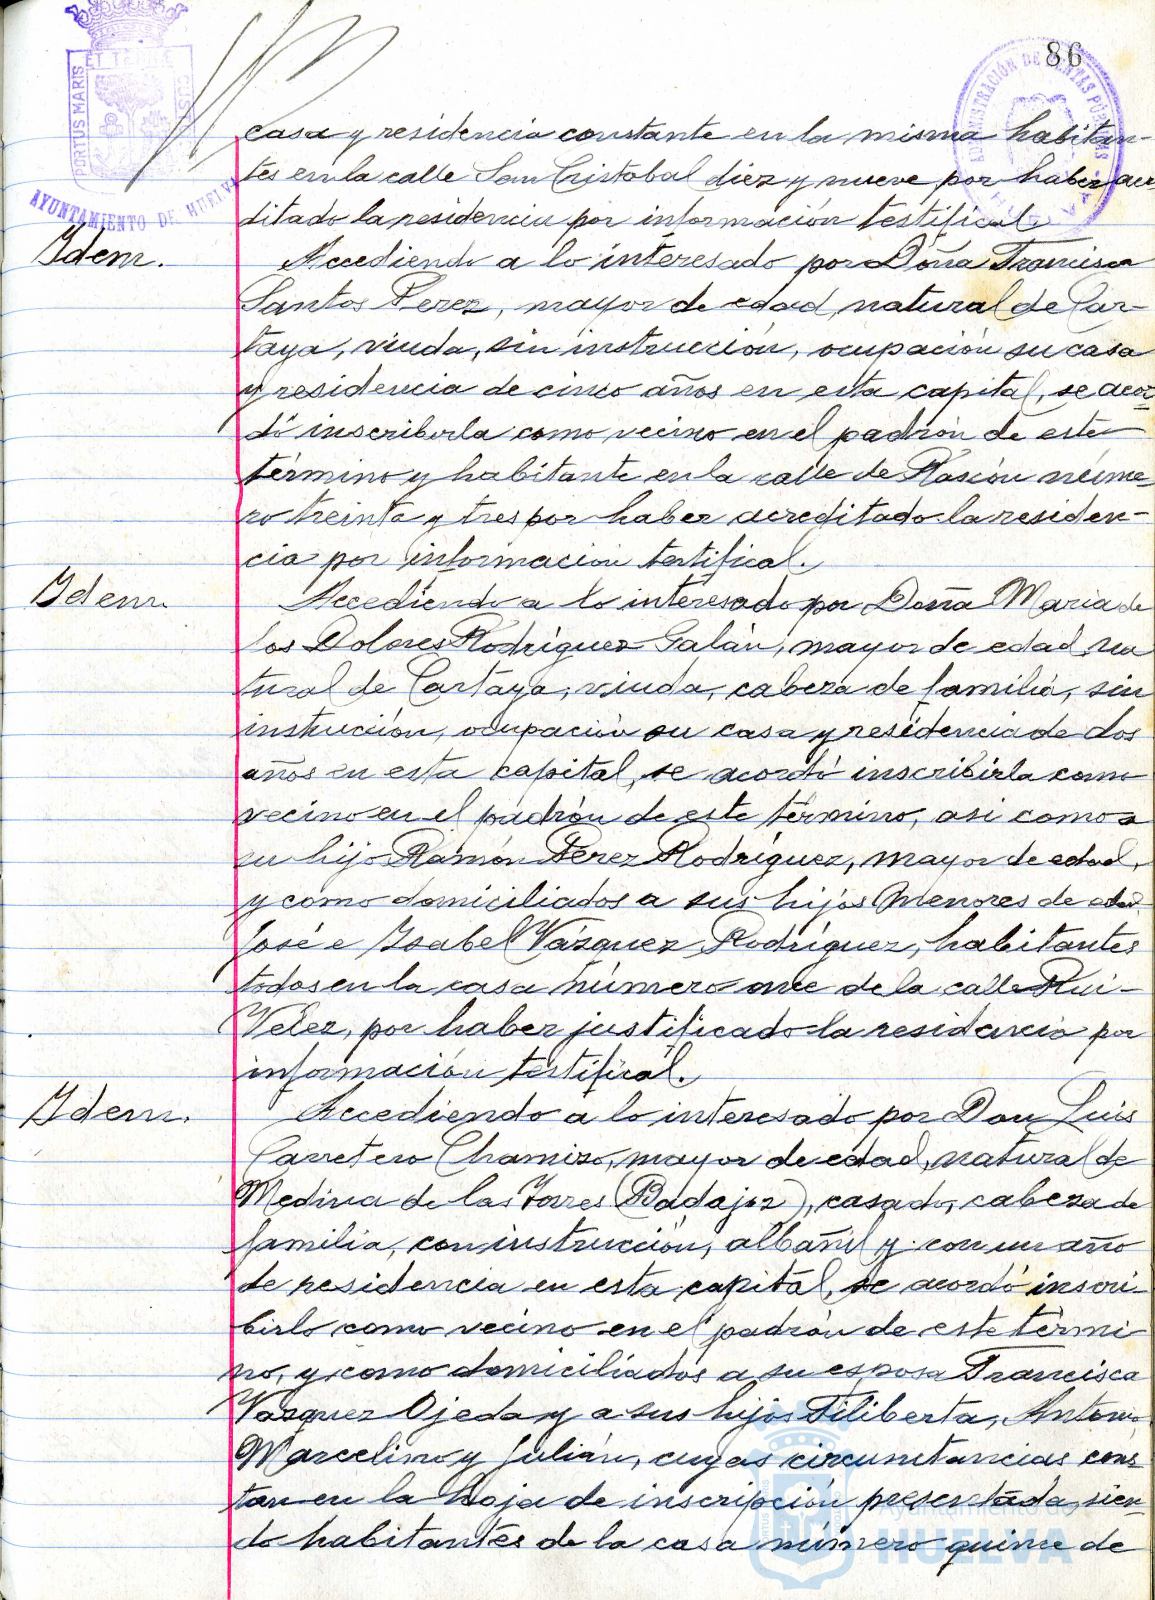 86
PORTUS MARIS
ET TERRE
CUSTODIA
AYUNTAMIENTO DE HUELVA
ADMINISTRACIÓN DE RENTAS PÚBLICAS
casa y residencia constante en la misma habitan-
tes en la calle San Cristobal diez y nueve por haber acre
ditado la residencia por información testifical.
Idem.
Accediendo a lo interesado por Doña Francisca
Santos Perez, mayor de edad, natural de Car-
taya, viuda, sin instrucción, ocupación su casa
y residencia de cinco años en esta capital, se acor-
dó inscribirla como vecino en el padrón de este
término y habitante en la calle de Rascón núme-
ro treinta y tres por haber acreditado la residen-
cia por información testifical.
Idem.
Accediendo a lo interesado por Doña Maria de
los Dolores Rodríguez Galán, mayor de edad, na
tural de Cartaya, viuda, cabeza de familia, sin
instrucción, ocupación su casa y residencia de dos
años en esta capital, se acordó inscribirla como
vecino en el padrón de este término, asi como a
su hijo Ramón Pérez Rodríguez, mayor de edad,
y como domiciliados a sus hijos menores de edad
José e Isabel Vázquez Rodríguez, habitantes
todos en la casa número once de la calle Rui-
Velez, por haber justificado la residencia por
información testifical.
Idem.
Accediendo a lo interesado por Don Luis
Carretero Chamizo, mayor de edad, natural de
Medina de las Torres (Badajoz), casado, cabeza de
familia, con instrucción, albañil y con un año
de residencia en esta capital, se acordó inscri-
birlo como vecino en el padrón de este térmi-
no, y como domiciliados a su esposa Francisca
Vazquez Ojeda y a sus hijos Filiberta, Antonio,
Marcelino y Julián, cuyas circunstancias cons
tan en la hoja de inscripción presentada, sien-
do habitantes de la casa número quince de
Ayuntamiento de
HUELVA